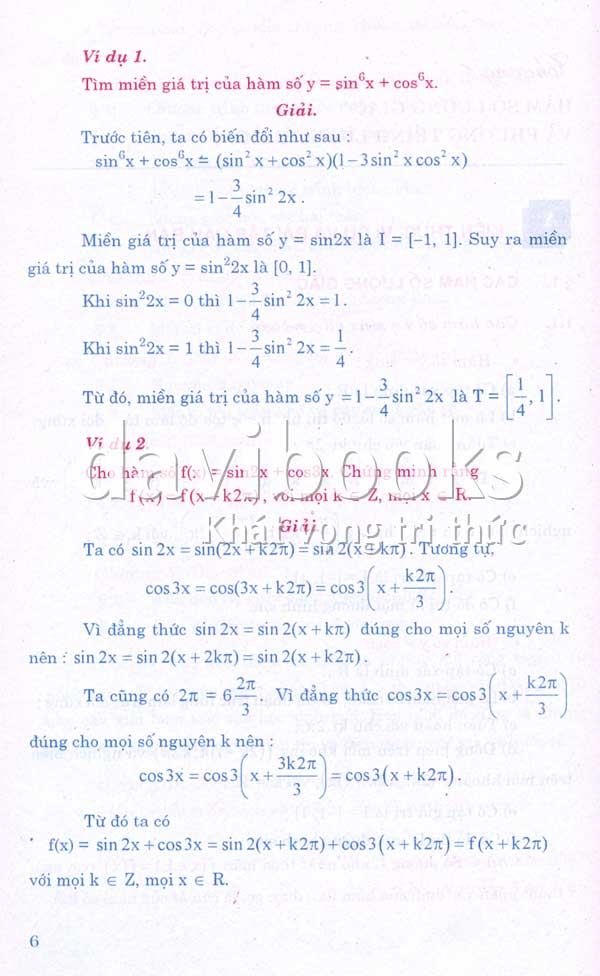 Ví dụ 1.
Tìm miền giá trị của hàm số y = sin⁶x + cos⁶x.
Giải.
Trước tiên, ta có biến đổi như sau :
sin⁶x + cos⁶x = (sin² x + cos² x)(1 – 3 sin² x cos² x)
= 1 – 3/4 sin² 2x .
Miền giá trị của hàm số y = sin2x là I = [–1, 1]. Suy ra miền
giá trị của hàm số y = sin²2x là [0, 1].
Khi sin²2x = 0 thì 1 – 3/4 sin² 2x = 1 .
Khi sin²2x = 1 thì 1 – 3/4 sin² 2x = 1/4 .
Từ đó, miền giá trị của hàm số y = 1 – 3/4 sin² 2x là T = [1/4, 1] .
Ví dụ 2.
Cho hàm số f(x) = sin2x + cos3x. Chứng minh rằng
f(x) = f(x + k2π), với mọi k ∈ Z, mọi x ∈ R.
davibooks
Khát vọng tri thức
Giải
Ta có sin 2x = sin(2x + k2π) = sin 2(x + kπ) . Tương tự,
cos 3x = cos(3x + k2π) = cos 3(x + k2π/3) .
Vì đẳng thức sin 2x = sin 2(x + kπ) đúng cho mọi số nguyên k
nên : sin 2x = sin 2(x + 2kπ) = sin 2(x + k2π) .
Ta cũng có 2π = 6 2π/3 . Vì đẳng thức cos 3x = cos 3(x + k2π/3)
đúng cho mọi số nguyên k nên :
cos 3x = cos 3(x + 3k2π/3) = cos 3(x + k2π) .
Từ đó ta có
f(x) = sin 2x + cos 3x = sin 2(x + k2π) + cos 3(x + k2π) = f(x + k2π)
với mọi k ∈ Z, mọi x ∈ R.
6